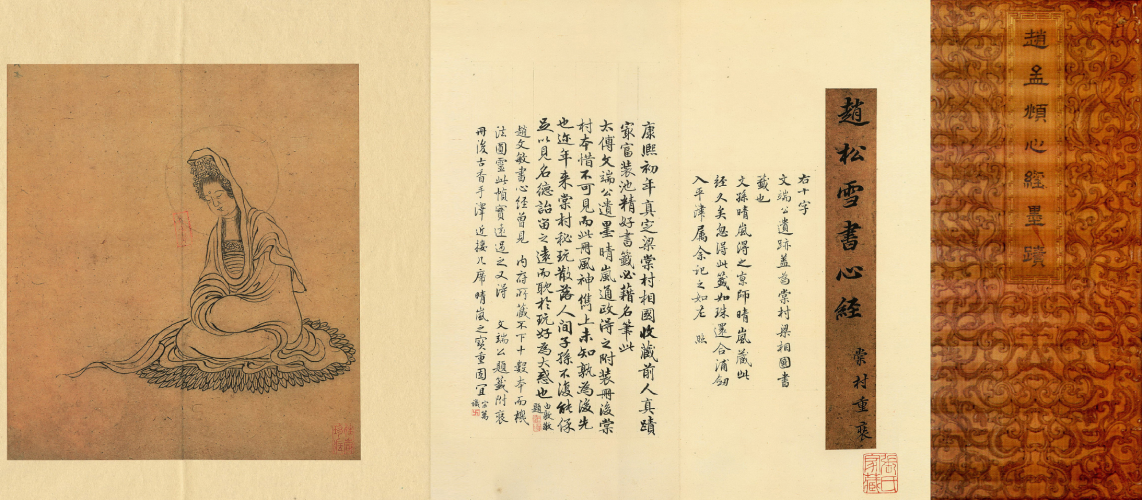 趙孟頫心經墨蹟
趙松雪書心経
棠村重裝
張氏家藏
右十字
文端公遺跡蓋為棠村梁相國書
籤也
文孫晴嵐得之京師晴嵐藏此
経久矣忽得此籤如珠還合浦劒
入平津属余記之如左 照
康熙初年真定梁棠村相國收藏前人真蹟
家富装池精好書籤必藉名筆此
太傅文端公遺墨晴嵐通政得之附装冊後棠
村本惜不可見而此冊風神儁上未知孰為後先
也近年来棠村秘玩散落人间子孫不復能保
足以見名德詒留之遠而耽於玩好為大惑也
由敦敬題
趙文敏書心経曾見 内府所藏不下十数本而楔
法圓靈此幀實遠過之又得 文端公題籤附裝
冊後古香手澤近接几席晴嵐之寶重固宜
宗萬識